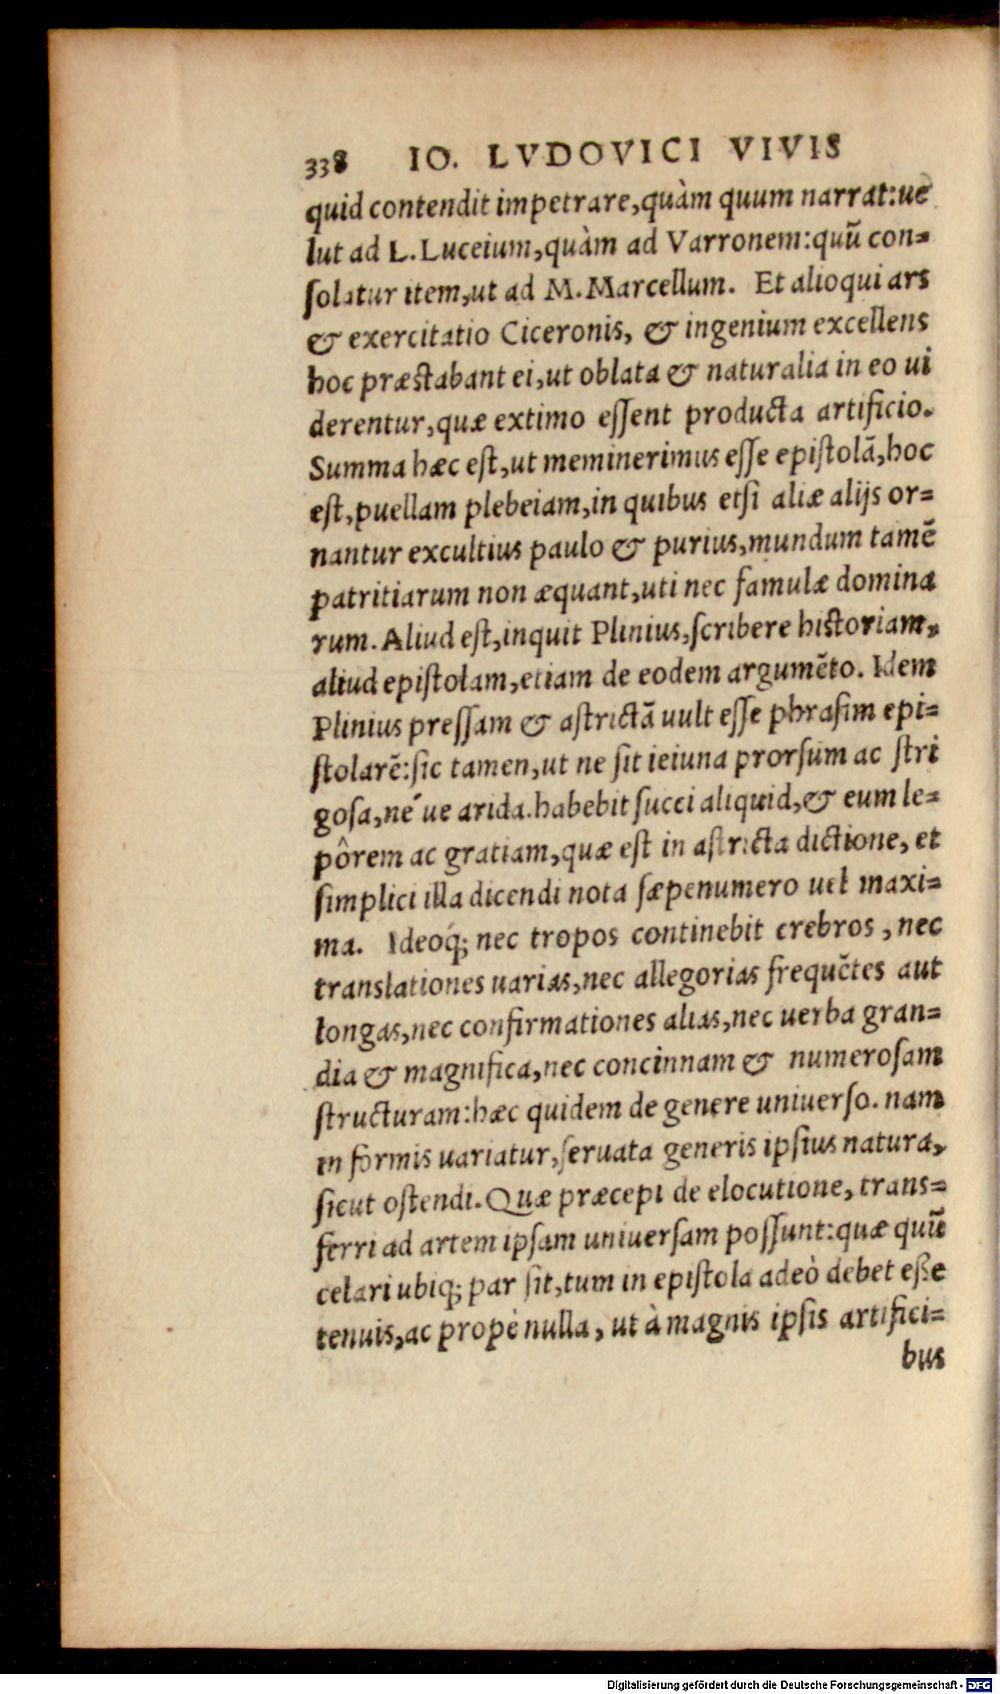 338 IO. LVDOVICI VIVIS
quid contendit impetrare, quàm quum narrat: ue
lut ad L. Luceium, quàm ad Varronem: quũ con=
solatur item, ut ad M. Marcellum. Et alioqui ars
& exercitatio Ciceronis, & ingenium excellens
hoc præstabant ei, ut oblata & naturalia in eo ui
derentur, quæ extimo essent producta artificio.
Summa hæc est, ut meminerimus esse epistolã, hoc
est, puellam plebeiam, in quibus etsi aliæ alijs or=
nantur excultius paulo & purius, mundum tamẽ
patritiarum non æquant, uti nec famulæ domina
rum. Aliud est, inquit Plinius, scribere historiam,
aliud epistolam, etiam de eodem argumẽto. Idem
Plinius pressam & astrictã uult esse phrasim epi=
stolarẽ: sic tamen, ut ne sit ieiuna prorsum ac stri
gosa, né ue arida. habebit succi aliquid, & eum le=
pôrem ac gratiam, quæ est in astricta dictione, et
simplici illa dicendi nota sæpenumero uel maxi=
ma. Ideoq́; nec tropos continebit crebros, nec
translationes uarias, nec allegorias frequẽtes aut
longas, nec confirmationes alias, nec uerba gran=
dia & magnifica, nec concinnam & numerosam
structuram: hæc quidem de genere uniuerso. nam
in formis uariatur, seruata generis ipsius natura,
sicut ostendi. Quæ præcepi de elocutione, trans=
ferri ad artem ipsam uniuersam possunt: quæ quũ
celari ubiq; par sit, tum in epistola adeò debet eße
tenuis, ac propè nulla, ut à magnis ipsis artifici=
bus
Digitalisierung gefördert durch die Deutsche Forschungsgemeinschaft - DFG